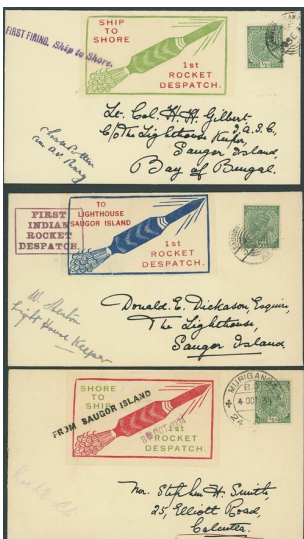 FIRST FIRING. Ship to Shore.
SHIP
TO
SHORE
1st
ROCKET
DESPATCH.
Lt. Col. H. H. Gilbert
I.A.S.C.,
C/o The Lighthouse Keeper,
Saugor Island,
Bay of Bengal.
FIRST
INDIAN
ROCKET
DESPATCH.
TO
LIGHTHOUSE
SAUGOR ISLAND
1st
ROCKET
DESPATCH.
Donald. E. Dickason, Esquire,
The Lighthouse,
Saugor Island
Light House Keeper
SHORE
TO
SHIP
FROM SAUGOR ISLAND
OCT 1934
1st
ROCKET
DESPATCH.
4 OCT 34
Mr. Stephen H. Smith,
25, Elliott Road,
Calcutta.